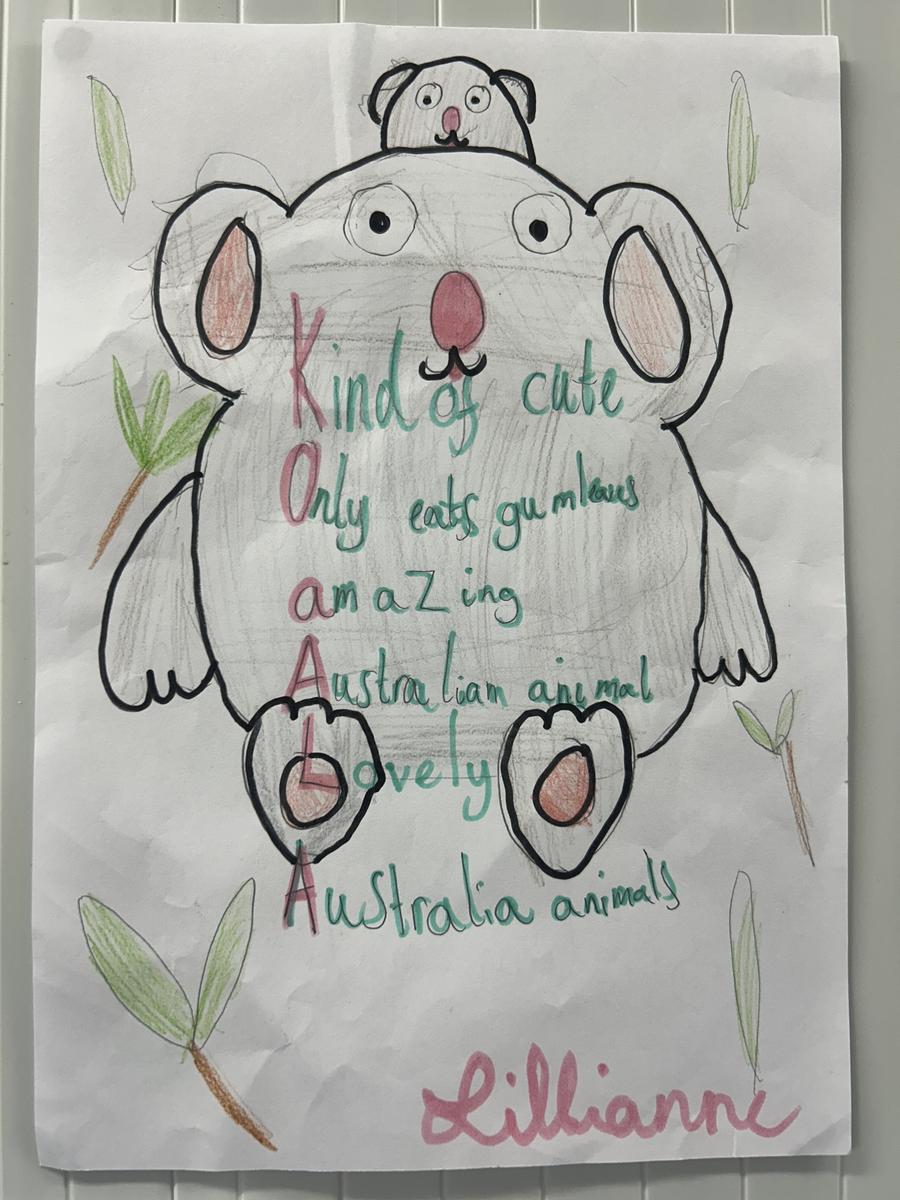 Kind of cute
Only eats gumleaves
amaZing
Australian animal
Lovely
Australia animals
Lillianne